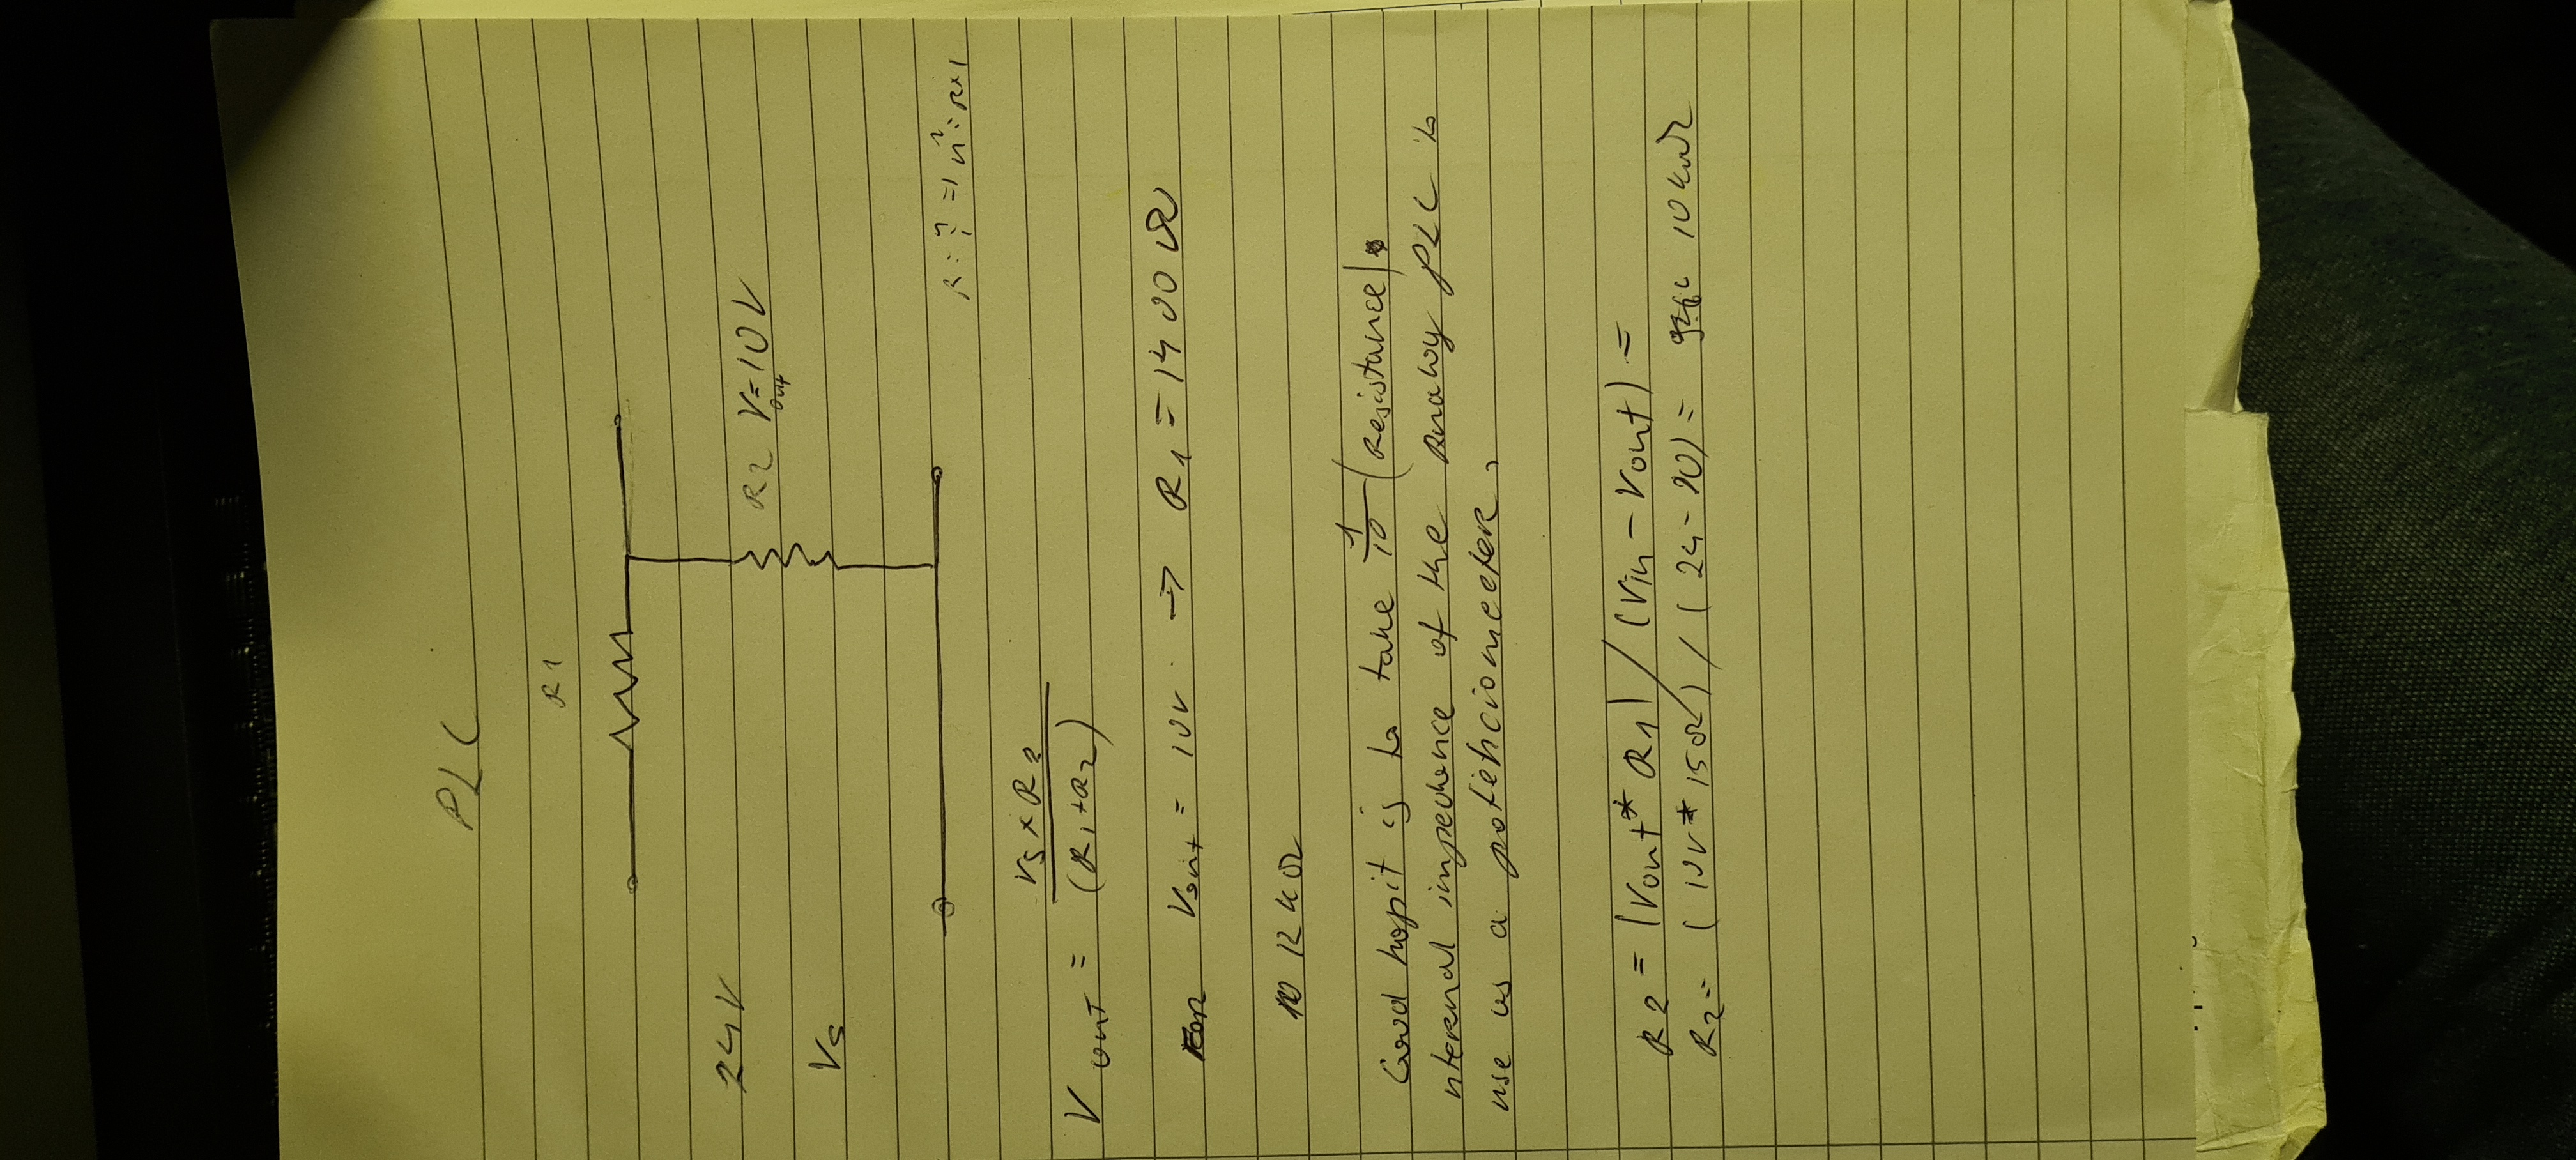 PLC
R1
24V
R2 V=10V
out
Vs
Vout = Vs x R2
(R1+R2)
Vout = 10V → R1 = 1400Ω
10 kΩ
Good hapit is to take 1/10 (Resistance)
nternal impedance of the Analog PLC to
use as a
R2 = (Vout* R1) / (Vin - Vout) =
R2= (10V* 15Ω) / (24-10) = 10kΩ